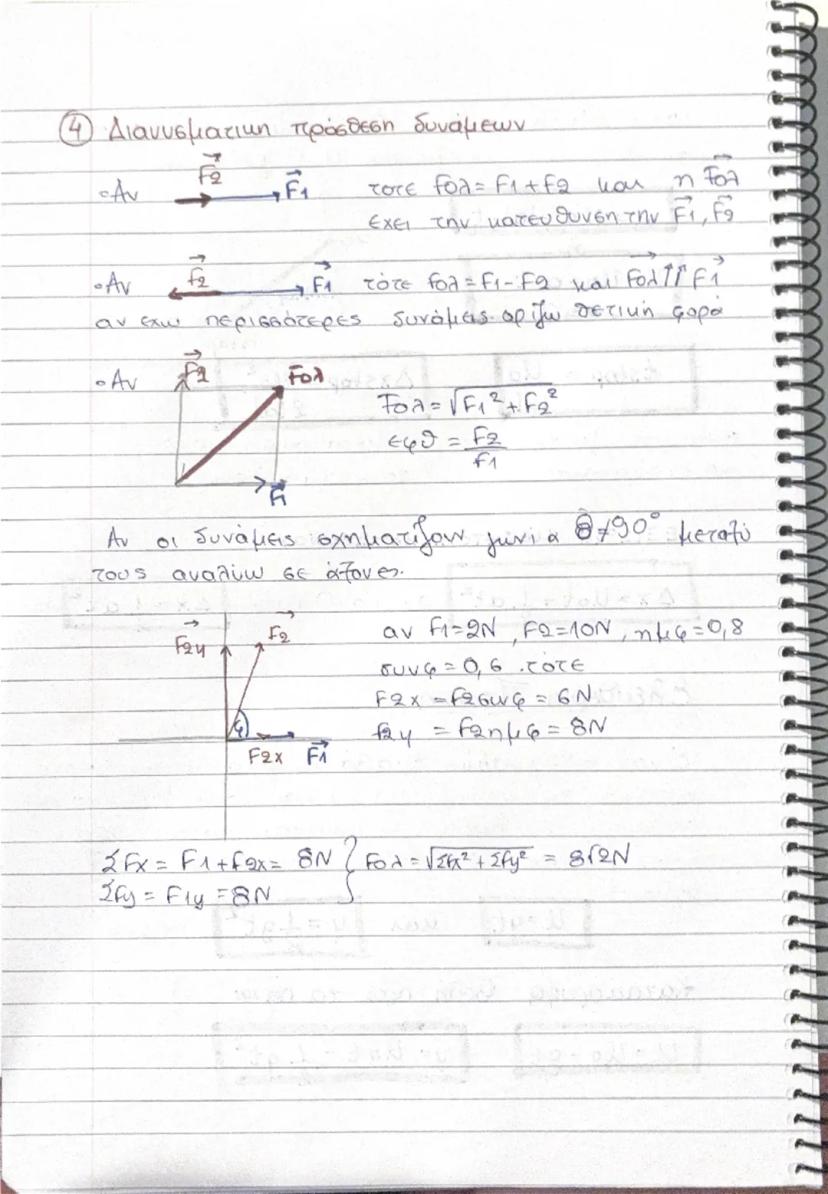 ④ Διανυσματικη πρόσθεση δυνάμεων
•Αν F2 F1 τοτε Fολ = F1 + F2 και η Fολ
εχει την κατευθυνση την F1, F2
•Αν F2 F1 τότε Fολ = F1 - F2 και Fολ ↑↑ F1
αν εχω περισσότερες δυνάμεις οριζω θετική φορά
•Αν F2 Fολ
Fολ = √F1² + F2²
εφθ = F2/F1
F1
Αν οι δυνάμεις σχηματίζουν γωνία θ≠90° μεταξύ
τους αναλύω σε άξονες.
F2y F2 αν F1=2N, F2=10N, ημφ=0,8
συνφ = 0,6 .τότε
F2x = F2συνφ = 6N
φ f2y = F2ημφ = 8N
F2x F1
ΣFx = F1 + F2x = 8N } Fολ = √ΣFx² + ΣFy² = 8√2N
ΣFy = F1y = 8N